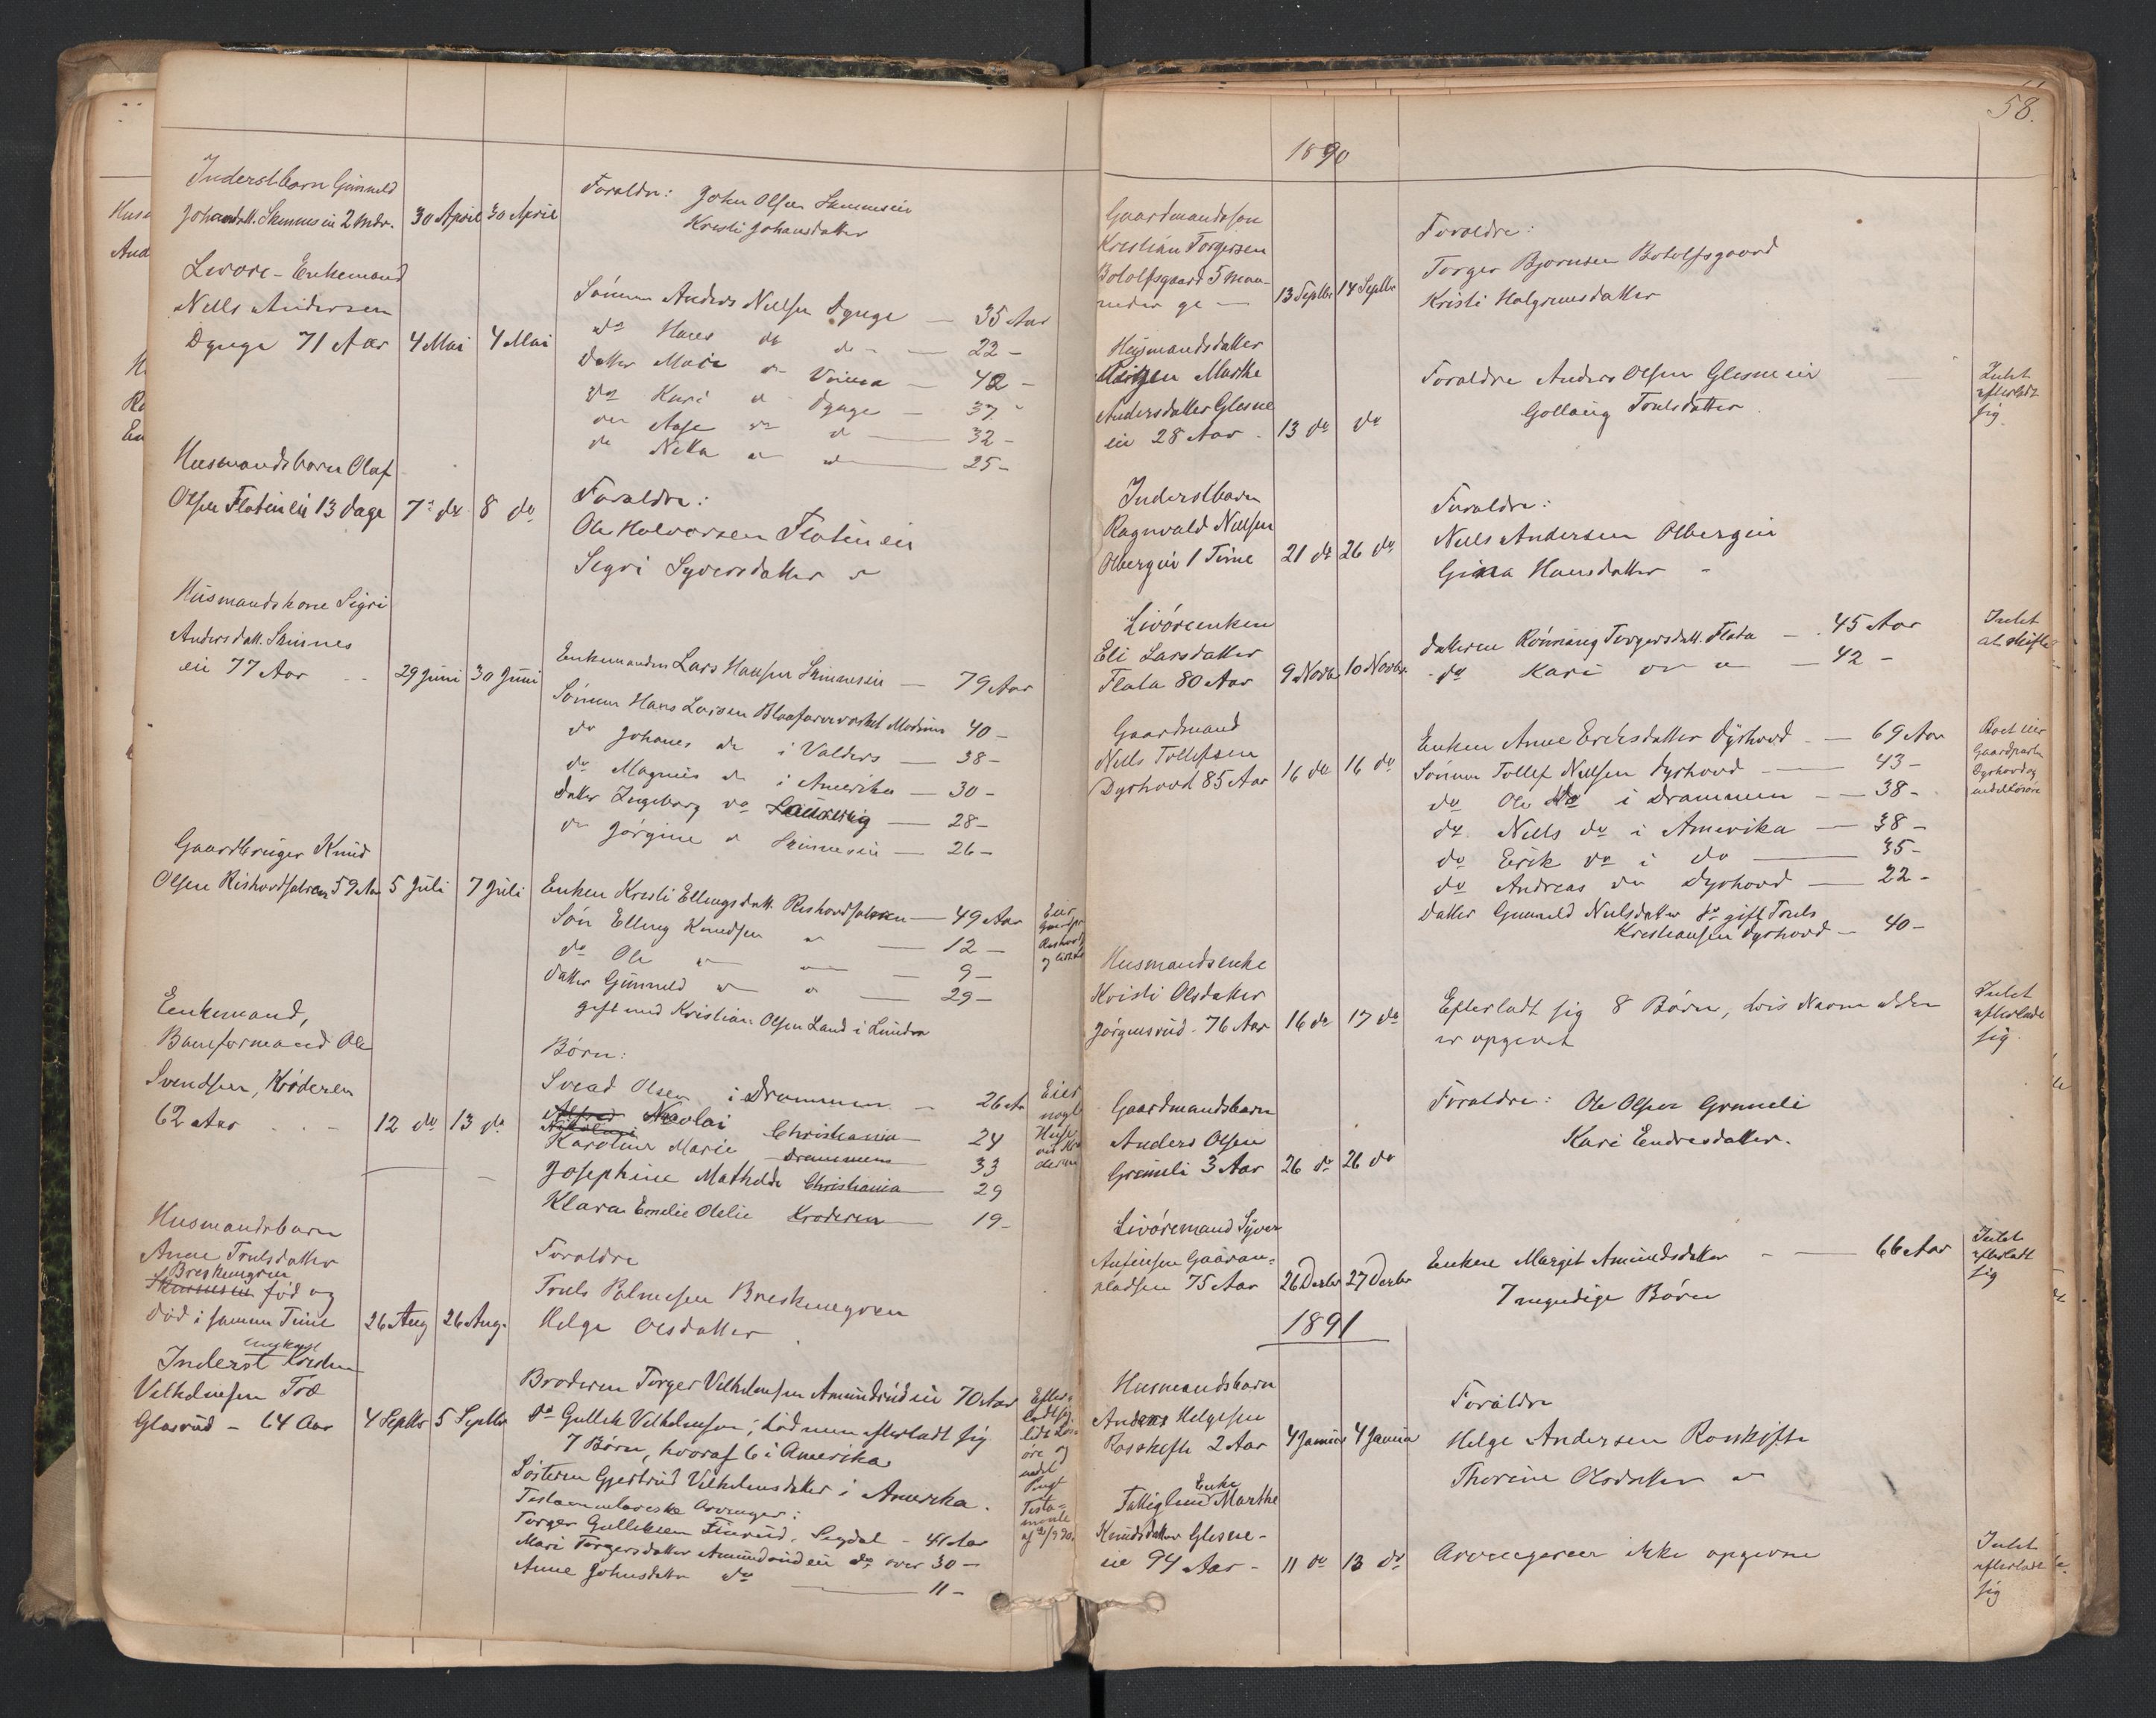 Inderstbarn Gunnild
Johansdatt. Skinnes ei 2 Mdr. 30 April 30 April
Foraldre: John Olsen Skinnesei
Kristi Johansdatter
Enkemand
Nells Andersen
Dynge 71 Aar 4 Mai 4 Mai
Sønnen Anders Nellsen Dynge — 35 Aar
do Hans do do — 22 —
Datter Mari do — 42 —
do Kari do Dynge — 37 —
do Aase do do — 32 —
do Nella do do — 25 —
Husmandsbarn Olaf
Olsen Flatin ei 13 Dage 7de do 8 do
Foraldre:
Ole Halvorsen Flatin ei
Segri Syversdatter
Husmandskone Sigri
Andersdatt. Skinnes
ei 77 Aar 29 Juni 30 Juni
Enkemanden Lars Hansen Skinnesei — 79 Aar
Sønnen Hans Larsen Blaafarveverket Modum 40 —
do Johanes do i Valders — 38 —
do Magnus do i Amerika — 30 —
Datter Ingeborg do — 28 —
do Jørgine do Skinnesei — 26 —
Gaardbruger Knud
Olsen 59 Aar 5 Juli 7 Juli
Enken Kristi Ellingsdatt. — 49 Aar
Søn Elling Knudsen — 12 —
do Ole — 9 —
Datter Gunnild — 29 —
gift med Kristian Olsen Land i
Enkemand,
Baneformand Ole
Svendsen, Krøderen
62 Aar 12 do 13 do
Børn:
Svend Olsen i Drammen — 26 Aar
Nicolai Christiania — 24
Karoline Marie Drammen 33
Josephine Mathilde Christiania — 29
Klara Emelie Otelie Krøderen — 19 —
Eier
nogle
Huse
ved Krø
deren
Husmandsbarn
Anne Trulsdatter
Breskmegren
Skinnesei fød og
Død i samme Time 26 Aug 26 Aug.
Foraldre
Truls Palmesen Breskmegren
Helge Olsdatter
ungkarl
Inderst
Velhelmsen Træ
Glasrud — 64 Aar 4 Septbr 5 Septbr
Broderen Torger Velhelmsen Amundrud ei 70 Aar
do Gullik Velhelmsen, død men efterladt sig
7 Børn, hvoraf 6 i Amerika
Søsteren Gjertrud Velhelmsdatter i Amerika.
Testamentariske Arvinger:
Torger Gulleksen Finrud, Segdal — 41 Aar
Mari Torgersdatter Amundrud ei do over 30 —
Anne Johnsdatter do — 11 —
Efter
ladt sig
lidt Løs
øre og
Testa-
mente
58.
1890
Gaardmandssøn
Kristian Torgersen
Botolfsgaard 5 Maa-
neder 13 Septbr 14 Septbr
Foraldre:
Torger Bjørnsen Botolfsgaard
Kristi Halgrimsdatter
Husmandsdatter
Marthe
Andersdatter Glesne
ei 28 Aar 13 do do
Foraldre Anders Olsen Glesne ei
Gollaug Trulsdatter
Intet
efterladt
sig
Inderstbarn
Ragnvald Nellsen
Olbergei 1 Time 21 do 26 do
Foraldre:
Nells Andersen Olbergei
Gina Hansdatter
Livøreenken
Eli Larsdatter
Flata 80 Aar 9 Novbr 10 Novbr.
Datteren Rønnaug Torgersdatt. Flata — 45 Aar
do Kari — 42 —
Intet
at skifte
Gaardmand
Nells Tollefsen
Dyrhovd 85 Aar 16 do 16 do
Enken Anne Ericksdatter Dyrhovd — 69 Aar
Sønnen Tollef Nellsen Dyrhovd — 43 —
do Ole do i Drammen — 38 —
do Nells do i Amerika — 38 —
do Erik do i do — 35 —
do Andreas do Dyrhovd — 22 —
Datter Gunnild Nellsdatter gift Truls
Kristiansen Dyrhovd — 40 —
Boet eier
Gaardpart
Dyrhovd og
endel Løsøre
Husmandsenke
Kristi Olsdatter
Jørgensrud 76 Aar 16 do 17 do
Efterladt sig 8 Børn, hvis Navne ikke
er opgivet
Intet
efterladt
sig
Gaardmandsbarn
Anders Olsen
Grimeli 3 Aar 26 do 26 do
Foraldre: Ole Olsen Grimeli
Kari Endresdatter.
Livøremand Syver
Antensen Gaaran-
pladsen 75 Aar 26 Decbr 27 Decbr
Enken Margit Amundsdatter — 66 Aar
7 myndige Børn
Intet
efterladt
sig
1891
Husmandsbarn
Anders Helgesen
Roskifte 2 Aar 4 Januar 4 Januar
Foraldre
Helge Andersen Roskifte
Thorine Olsdatter
Enke
Fattiglem Marthe
Knudsdatter Glesne-
ei 94 Aar — 11 do 13 do
Arvingerne ikke opgivne
Intet
efterladt
sig